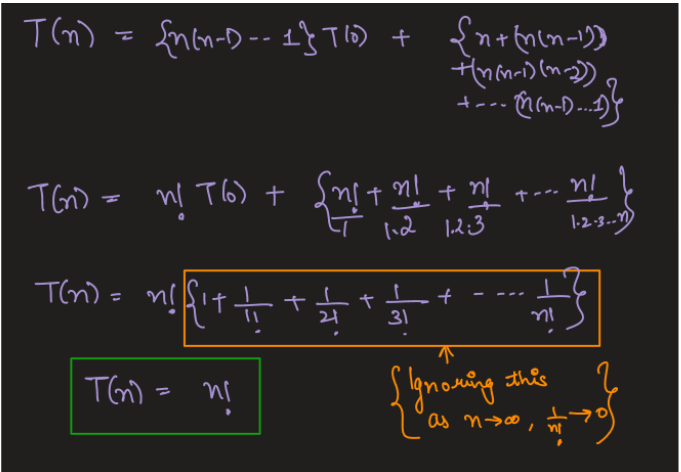 T(n) = {n(n-1)--1}T(0) + {n+(n(n-1))
+(n(n-1)(n-2))
+---(n(n-1)...1)}
T(n) = n! T(0) + {n!/1 + n!/1.2 + n!/1.2.3 + --- n!/1.2.3..n}
T(n) = n!{1+ 1/1! + 1/2! + 1/3! + - --- 1/n!}
T(n) = n!
{Ignoring this
as n→∞, 1/n!→0}